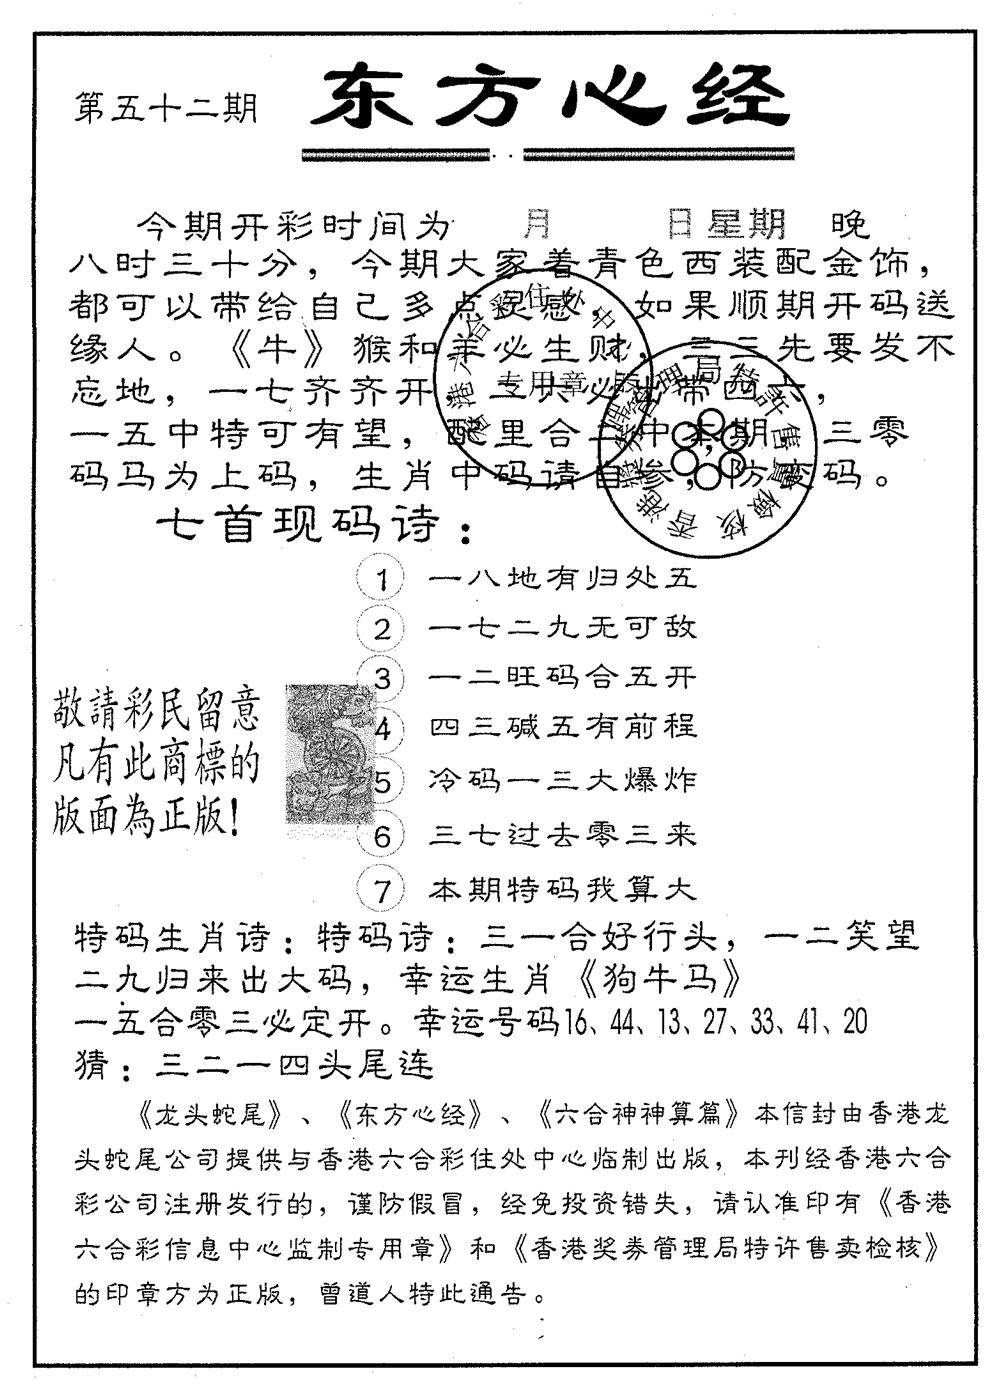 第五十二期
东方心经
今期开彩时间为 月 日星期 晚
八时三十分，今期大家着青色西装配金饰，
都可以带给自己多点灵感，如果顺期开码送
缘人。《牛》猴和羊必生财，三三先要发不
忘地，一七齐齐开，二六必出带四六，
一五中特可有望，配里合一中本期，三零
码马为上码，生肖中码请自参，防 码。
七首现码诗：
1 一八地有归处五
2 一七二九无可敌
3 一二旺码合五开
4 四三碱五有前程
5 冷码一三大爆炸
6 三七过去零三来
7 本期特码我算大
敬請彩民留意
凡有此商標的
版面為正版！
特码生肖诗：特码诗：三一合好行头，一二笑望
二九归来出大码，幸运生肖《狗牛马》
一五合零三必定开。幸运号码16、44、13、27、33、41、20
猜：三二一四头尾连
《龙头蛇尾》、《东方心经》、《六合神神算篇》本信封由香港龙
头蛇尾公司提供与香港六合彩住处中心临制出版，本刊经香港六合
彩公司注册发行的，谨防假冒，经免投资错失，请认准印有《香港
六合彩信息中心监制专用章》和《香港奖券管理局特许售卖检核》
的印章方为正版，曾道人特此通告。
香港六合彩住处中心
专用章
香港獎券管理局特許售賣檢核